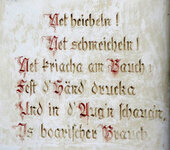 Net heicheln!
Net schmeicheln!
Net kriacha am Bauch:
Fest d'Händ drucka
Und in d'Aug'n schaug'n,
Is boarischer Brauch